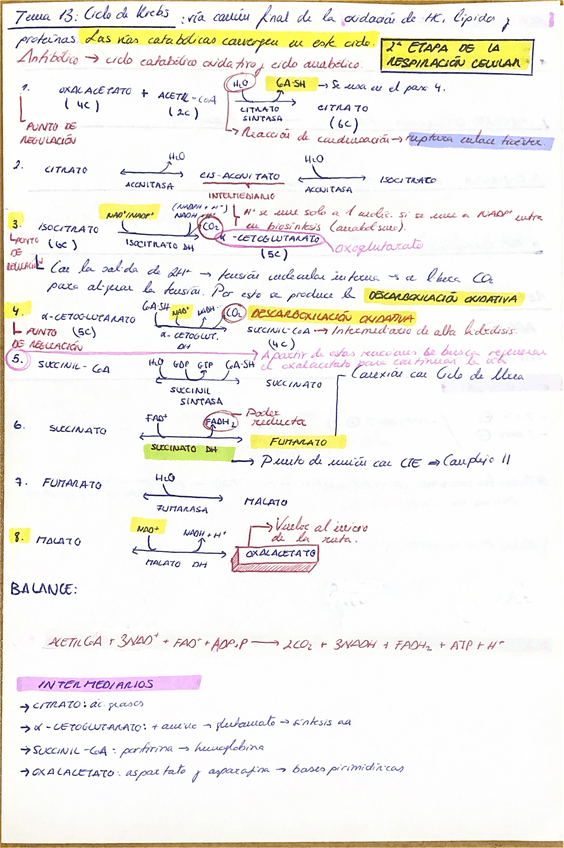 Tema 13: Ciclo de Krebs: vía común final de la oxidación de HC, lípidos y
proteínas. Las vías catabólicas convergen en este ciclo.
2ª ETAPA DE LA
RESPIRACIÓN CELULAR
Anfibólico → ciclo catabólico oxidativo y ciclo anabólico.
1. OXALACETATO + ACETIL-CoA H2O CoA-SH → Se usa en el paso 4.
(4C) (2C) CITRATO SINTASA CITRATO (6C)
PUNTO DE REGULACIÓN
→ Reacción de condensación → ruptura enlace tioéster.
2. CITRATO H2O CIS-ACONITATO H2O ISOCITRATO
ACONITASA INTERMEDIARIO ACONITASA
3. ISOCITRATO NAD+/NADP+ (NADPH + H+) NADH + H+ CO2 H+ se une solo a 1 molec. si se une a NADP+ entra
en biosíntesis (anabolismo).
(6C) ISOCITRATO DH α-CETOGLUTARATO oxoglutarato
(5C)
PUNTO DE REGULACIÓN
Con la salida de 2H+ → tensión molecular interna → se libera CO2
para aligerar la tensión. Por esto se produce la DESCARBOXILACIÓN OXIDATIVA
4. α-CETOGLUTARATO CoA-SH NAD+ NADH+H+ CO2 DESCARBOXILACIÓN OXIDATIVA
(5C) α-CETOGLUT. DH SUCCINIL-CoA → Intermediario de alta hidrólisis.
(4C)
PUNTO DE REGULACIÓN
→ A partir de estas reacciones se busca regenerar
el oxalacetato para continuar la ruta
5. SUCCINIL-CoA H2O GDP GTP CoA-SH SUCCINATO
SUCCINIL SINTASA
Conexión con Ciclo de Urea
6. SUCCINATO FAD+ FADH2 → Poder reductor
SUCCINATO DH FUMARATO
→ Punto de unión con CTE ⇒ Complejo II
7. FUMARATO H2O MALATO
FUMARASA
8. MALATO NAD+ NADH + H+ OXALACETATO → Vuelve al inicio
de la ruta.
MALATO DH
BALANCE:
ACETIL CoA + 3NAD+ + FAD+ + ADP+P → 2CO2 + 3NADH + FADH2 + ATP + H+
INTERMEDIARIOS
→ CITRATO: ác. grasos
→ α-CETOGLUTARATO: + amino → glutamato → síntesis aa
→ SUCCINIL-CoA: porfirina → hemoglobina
→ OXALACETATO: aspartato y asparagina → bases pirimidínicas